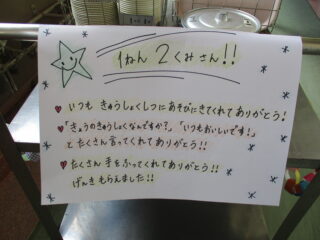 1ねん2くみさん!!
いつも きゅうしょくしつにあそびにきてくれてありがとう!
「きょうのきゅうしょくなんですか?」「いつもおいしいです!」
とたくさん言ってくれてありがとう!!
たくさん手をふってくれてありがとう!!
げんきもらえました!!